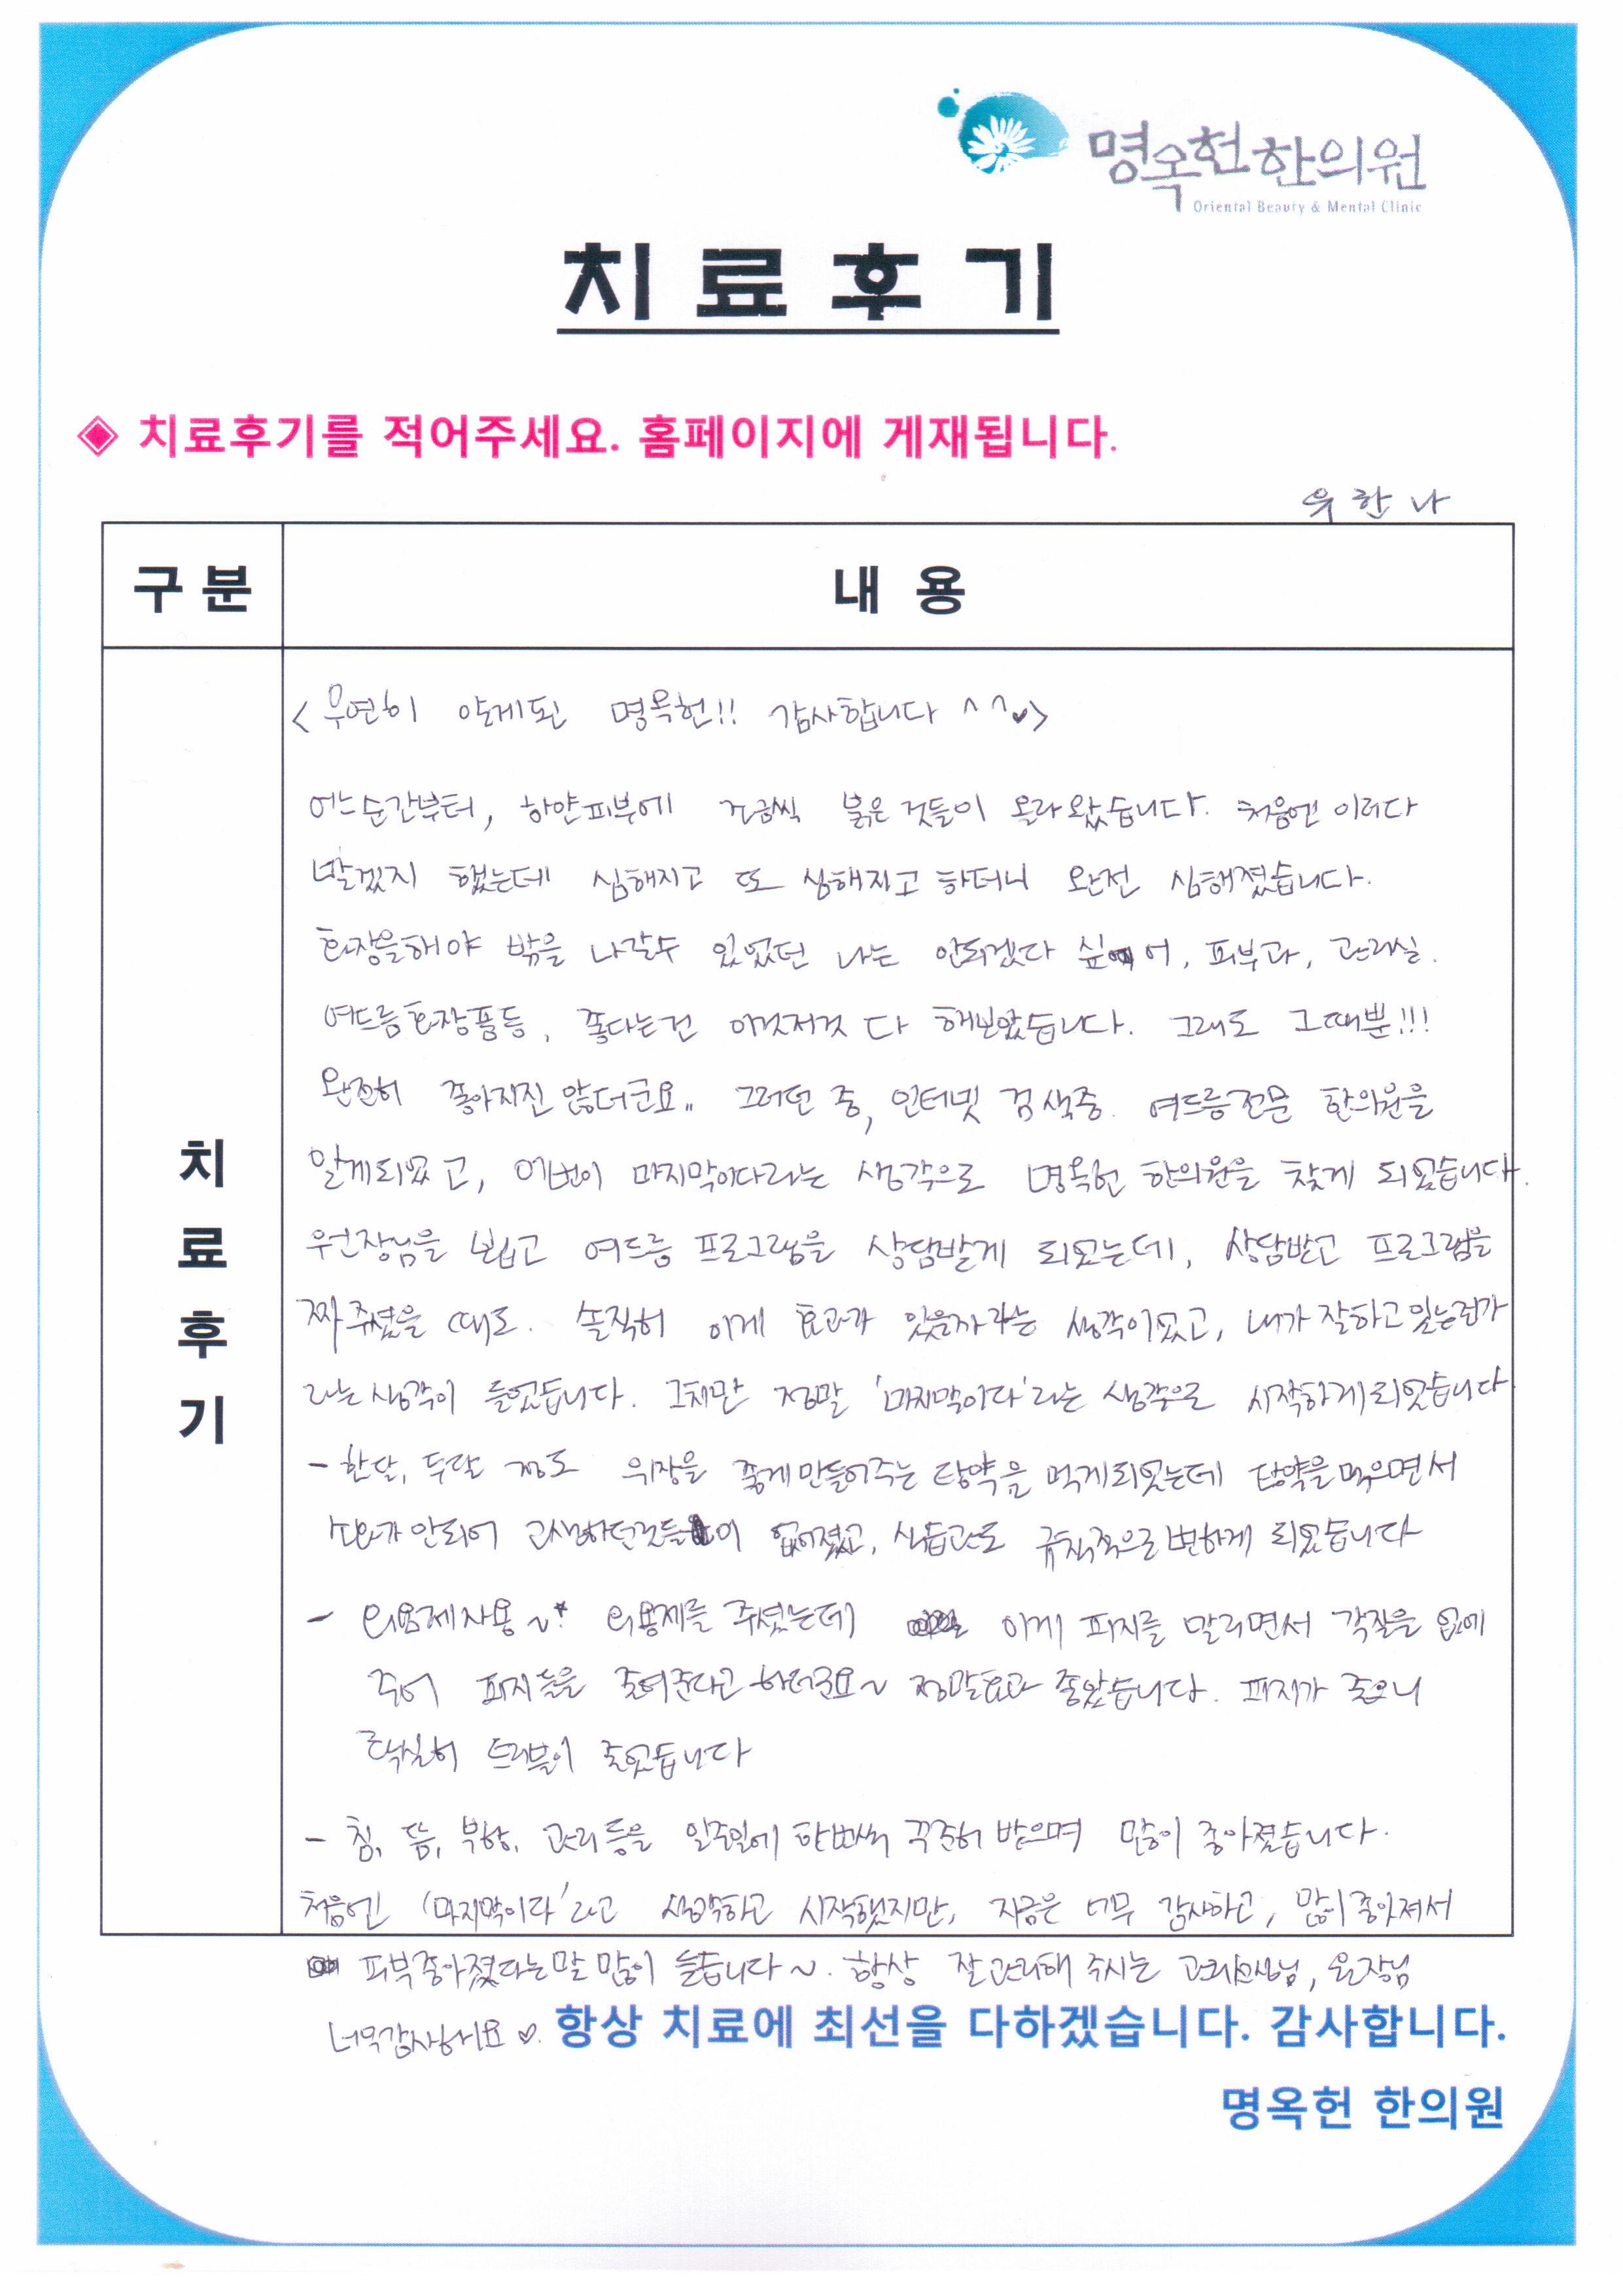 명옥헌한의원
Oriental Beauty & Mental Clinic
치료후기
◈ 치료후기를 적어주세요. 홈페이지에 게재됩니다.
유한나
구분
내용
<우연히 알게된 명옥헌!! 감사합니다 ^^♥>
어느순간부터, 하얀피부에 조금씩 붉은 것들이 올라왔습니다. 처음엔 이러다
말겠지 했는데 심해지고 또 심해지고 하더니 완전 심해졌습니다.
화장을해야 밖을 나갈수 있었던 나는 안되겠다 싶어, 피부과, 관리실.
여드름화장품등, 좋다는건 이것저것 다 해보았습니다. 그래도 그때뿐!!!
완전히 좋아지진 않더군요.. 그러던 중, 인터넷 검색중. 여드름전문 한의원을
알게되었고, 이번이 마지막이다라는 생각으로 명옥헌 한의원을 찾게 되었습니다.
원장님을 뵙고 여드름 프로그램을 상담받게 되었는데, 상담받고 프로그램을
짜주셨을 때도. 솔직히 이게 효과가 있을까라는 생각이었고, 내가 잘하고 있는건가
라는 생각이 들었습니다. 그치만 정말 '마지막이다'라는 생각으로 시작하게되었습니다
치료후기
- 한달, 두달 정도 위장을 좋게만들어주는 탕약을 먹게되었는데 탕약을 먹으면서
소화가 안되어 고생하던것들이 없어졌고, 식습관도 규칙적으로 변하게 되었습니다
- 외용제사용~* 외용제를 주셨는데 이게 피지를 말리면서 각질을 없애
주어 피지들을 줄여준다고 하더군요~ 정말효과 좋았습니다. 피지가 줄으니
확실히 트러블이 줄었습니다
- 침, 뜸, 부항, 관리 등을 일주일에 한번씩 꾸준히 받으며 많이 좋아졌습니다.
처음엔 '마지막이다'라고 생각하고 시작했지만, 지금은 너무 감사하고, 많이좋아져서
피부좋아졌다는말 많이 듣습니다~. 항상 잘관리해 주시는 관리선생님, 원장님
너무감사해요♡. 항상 치료에 최선을 다하겠습니다. 감사합니다.
명옥헌 한의원